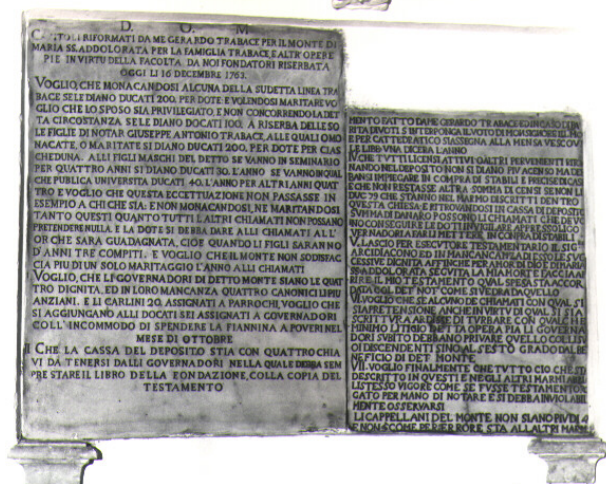 D. O. M.
CAPITOLI RIFORMATI DA ME GERARDO TRABACE PER IL MONTE DI
MARIA SS. ADDOLORATA PER LA FAMIGLIA TRABACE E ALTR'OPERE
PIE IN VIRTU DELLA FACOLTA DA NOI FONDATORI RISERBATA
OGGI LI 16 DECEMBRE 1763.
VOGLIO, CHE MONACANDOSI ALCUNA DELLA SUDETTA LINEA TRA
BACE SE LE DIANO DUCATI 200. PER DOTE E VOLENDOSI MARITARE VO
GLIO CHE LO SPOSO SIA PRIVILEGIATO, E NON CONCORRENDO LA DET
TA CIRCOSTANZA SE LE DIANO DUCATI 100. A RISERBA DELLE SO
LE FIGLIE DI NOTAR GIUSEPPE ANTONIO TRABACE, ALLE QUALI O MO
NACATE, O MARITATE SI DIANO DUCATI 200. PER DOTE PER CIAS
CHEDUNA. ALLI FIGLI MASCHI DEL DETTO SE VANNO IN SEMINARIO
PER QUATTRO ANNI SI DIANO DUCATI 30. L'ANNO SE VANNO IN QUAL
CHE PUBLICA UNIVERSITA DUCATI 40. L'ANNO PER ALTRI ANNI QUAT
TRO E VOGLIO CHE QUESTA ECCETTUAZIONE NON PASSASSE IN
ESEMPIO A CHI CHE SIA: E NON MONACANDOSI, NE MARITANDOSI
TANTO QUESTI QUANTO TUTTI L'ALTRI CHIAMATI NON POSSANO
PRETENDERE NULLA. E LA DOTE SI DEBBA DARE ALLI CHIAMATI ALL'
OR CHE SARA GUADAGNATA, CIOE QUANDO LI FIGLI SARANNO
D'ANNI TRE COMPITI. E VOGLIO CHE IL MONTE NON SODISFAC
CIA PIU DI UN SOLO MARITAGGIO L'ANNO ALLI CHIAMATI
VOGLIO, CHE LI GOVERNADORI DI DETTO MONTE SIANO LE QUAT
TRO DIGNITA, ED IN LORO MANCANZA QUATTRO CANONICI LI PIU
ANZIANI. E LI CARLINI 20. ASSIGNATI A PAROCHI, VOGLIO CHE
SI AGGIUNGANO ALLI DOCATI SEI ASSIGNATI A GOVERNADORI
COLL'INCOMMODO DI SPENDERE LA FIANNINA A POVERI NEL
MESE DI OTTOBRE
CHE LA CASSA DEL DEPOSITO STIA CON QUATTRO CHIA
VI DA TENERSI DALLI GOVERNADORI NELLA QUALE DEBBA SEM
PRE STARE IL LIBRO DELLA FONDAZIONE, COLLA COPIA DEL
TESTAMENTO
MENTO FATTO DA ME GERARDO TRABACE ED IN CASO DI
S'INTERPONGA IL VOTO DI MONSIGNORE
E PER CATTEDRATICO S'ASSEGNA ALLA MENSA VESCOVI
LE LIBR. UNA DI CERA L'ANNO
IV CHE TUTTI LI CENSI ATTIVI O ALTRI PERVENIENTI
NANDO NEL DEPOSITO NON SI DIANO PIU A CENSO MA DEB
BANSI IMPIEGARE IN COMPRA DI STABILI E PRECISE IN CASE
E CHE NON RESTASSE ALTRA SOMMA DI CENSI SE NON LI
DUC 79 CHE STANNO NEL MARMO DESCRITTI DENTRO
QUESTA CHIESA: E TROVANDOSI IN CASSA DI DEPOSITO
SUMMA DI DANARO POSSONO LI CHIAMATI CHE DEVO
NO CONSEGUIRE LE DOTI INVIGILARE APPRESSO LI GO
VERNADORI A FARLI METTERE IN COMPRA DI STABILI
V. LASCIO PER ESECUTORE TESTAMENTARIO IL SIG.
ARCIDIACONO ED IN MANCANZA DI ESSO LE SUC
CESSIVE DIGNITA AFFINCHE PER AMOR DI DIO E DI MARIA
SS ADDOLORATA SEGUITA LA MIA MORTE FACCIA A
RIRE IL MIO TESTAMENTO QUAL SPESA STA ACCOR
DATA COL DET. NOT. COME SI VEDRA DA QUELLO
VI. VOGLIO CHE SE ALCUNO DE CHIAMATI CON QUAL SI
SIA PRETENSIONE ANCHE IN VIRTU DI QUAL SI SIA
SCRITTURA ARDISSE DI TURBARE CON QUALCHE
MINIMO LITIGIO DETTA OPERA PIA LI GOVERNA
DORI SUBITO DEBBANO PRIVARE QUELLO COLLI SUOI
DISCENDENTI SINO AL SESTO GRADO DAL BE
NEFICIO DI DET. MONTE
VII. VOGLIO FINALMENTE CHE TUTTO CIO CHE STA
DESCRITTO IN QUESTI E NEGLI ALTRI MARMI ABBIA
L'ISTESSO VIGORE COME SE FUSSE TESTAMENTO RO
GATO PER MANO DI NOTARE E SI DEBBA INVIOLABIL
MENTE OSSERVARSI
LI CAPPELLANI DEL MONTE NON SIANO PIU DI 4
E NON 5 COME PER ERRORE STA ALL'ALTRI MARMI